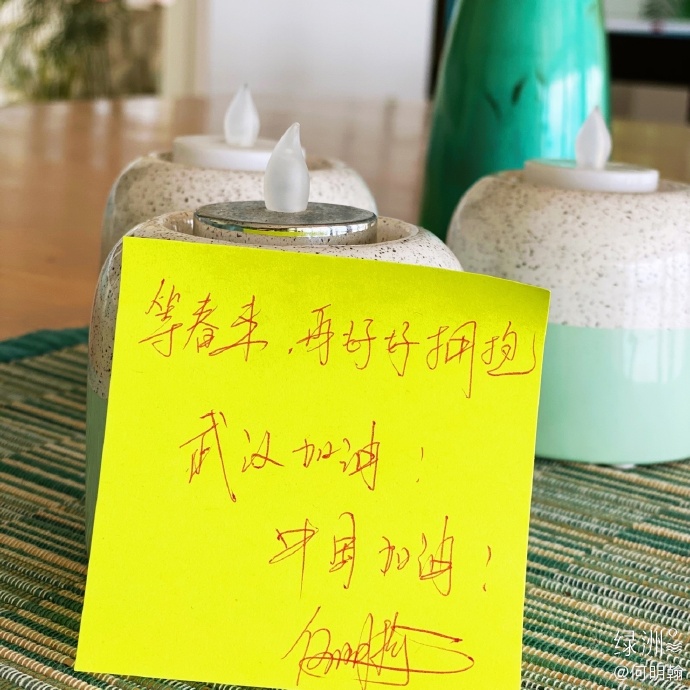 等春来，再好好拥抱
武汉加油！
中国加油！
何明翰
绿洲
@何明翰